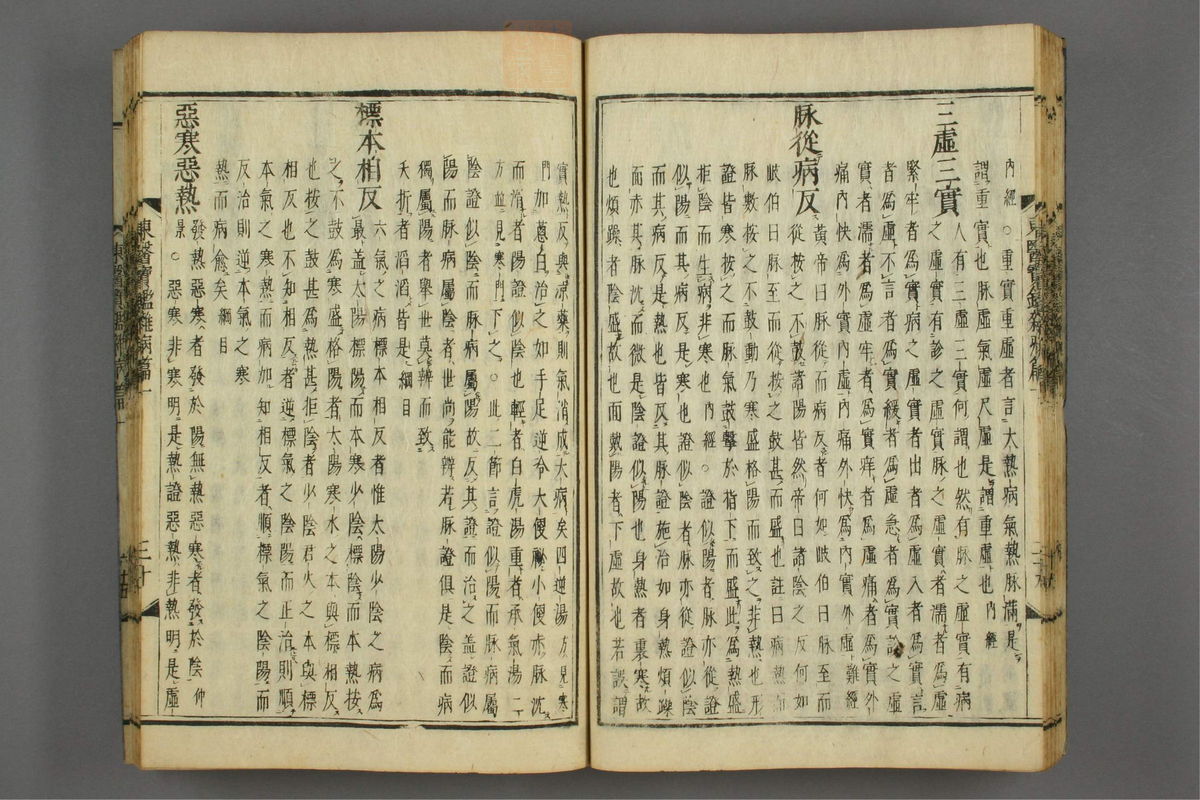 內經
謂重實重虛者言大熱病氣熱脉滿是
謂重實也脉虛氣虛尺虛是謂重虛也內經
三虛三實
人有三虛三實何謂也然有脉之虛實有病
之虛實有診之虛實脉之虛實者濡者爲虛
緊牢者爲實病之虛實者出者爲虛入者爲實言
者爲虛不言者爲實緩者爲虛急者爲實診之虛
實者濡者爲虛牢者爲實痒者爲虛痛者爲實外
痛內快爲外實內虛內痛外快爲內實外虛難經
脉從病反
黃帝曰脉從而病反者何如岐伯曰脉至而
從按之不鼓諸陽皆然帝曰諸陰之反何如
岐伯曰脉至而從按之鼓甚而盛也註曰病熱而
脉數按之不動乃寒盛格陽而致之非熱也形
證皆寒按之而脉氣鼓擊於指下而盛此爲熱盛
拒陰而生病非寒也內經○證似陽者脉亦從證
似陽而其病反是寒也證似陰者脉亦從證似陰
而其病反是熱也皆反其脉證施治如身熱煩躁
而赤其脉沈而微是陰證似陽也身熱者裏寒故
也煩躁者陰盛故也面戴陽者下虛故也若誤謂
實熱反與凉藥則氣消成大病矣四逆湯方見寒
門加葱白治之如手足逆冷大便秘小便赤脉沈
而滑者陽證似陰也輕者白虎湯重者承氣湯二
方並見寒門下之○此二節言證似陽而脉病屬
陰證似陰而脉病屬陽故反其證而治之盖證似
陽而脉病屬陰者世尚能辨若脉證俱是陰而病
獨屬陽者擧世莫辨而致
夭折者滔滔皆是綱目
標本相反
六氣之病標本相反者惟太陽少陰之病爲
最盖太陽標陽而本寒少陰標陰而本熱按
之不鼓爲寒盛格陽者太陽寒水之本與標相反
也按之鼓甚爲熱甚拒陰者少陰君火之本與標
相反也不知相反者逆標氣之陰陽而正治則順
本氣之寒熱而病加知相反者順標氣之陰陽而
反治則逆本氣之寒
熱而病愈矣綱目
惡寒惡熱
發熱惡寒者發於陽無熱惡寒者發於陰仲
景○惡寒非寒明是熱證惡熱非熱明是虛
東醫寶鑑雜病篇一
東醫寶鑑雜病篇一
三十